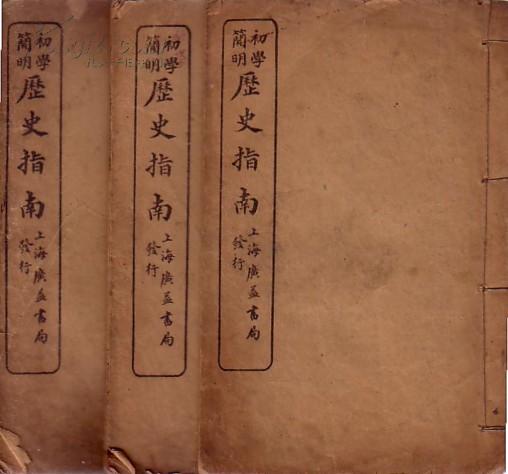 初學
簡明
歷史指南
上海廣益書局
發行
初學
簡明
歷史指南
上海廣益書局
發行
初學
簡明
歷史指南
上海廣益書局
發行